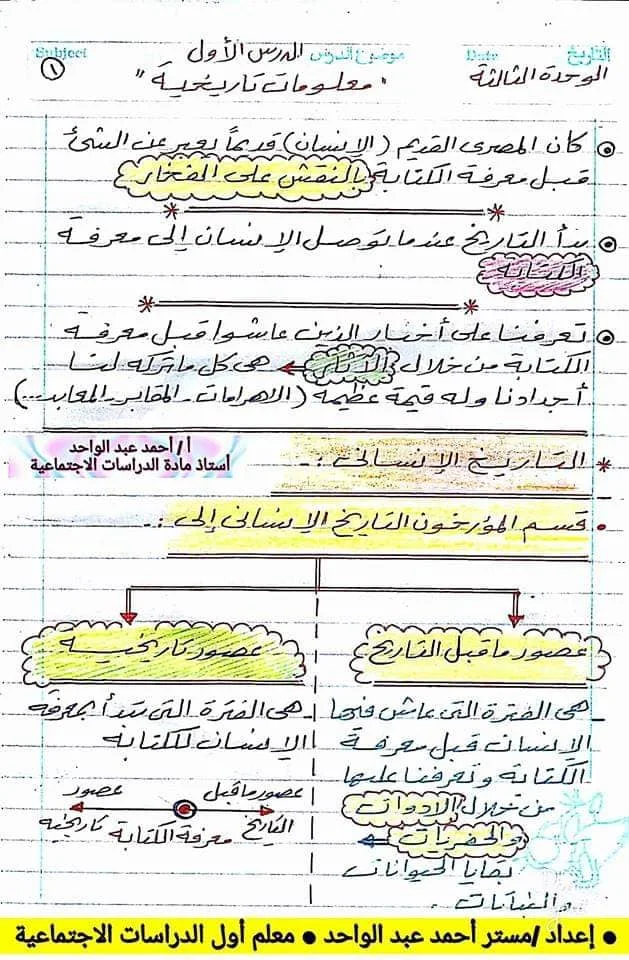 التاريخ
Date
موضوع الدرس
Subject
الوحدة الثالثة
الدرس الأول
"معلومات تاريخية"
١
كان المصرى القديم (الإنسان) قديماً يعبر عن الشئ
قبل معرفة الكتابة بالنقش على الفخار
بدأ التاريخ عندما توصل الإنسان إلى معرفة
الكتابة
تعرفنا على أخبار الذين عاشوا قبل معرفة
الكتابة من خلال الآثار هى كل ما تركه لنا
أجدادنا وله قيمة عظيمة (الاهرامات - المقابر - المعابد ...)
أ / أحمد عبد الواحد
أستاذ مادة الدراسات الاجتماعية
* التاريخ الإنسانى :-
قسم المؤرخون التاريخ الإنسانى إلى :-
عصور ما قبل التاريخ
هى الفترة التى عاش فيها
الإنسان قبل معرفة
الكتابة وتعرفنا عليها
من خلال الأدوات
والحفريات
بقايا الحيوانات
والنباتات.
عصور تاريخية
هى الفترة التى تبدأ بمعرفة
الإنسان للكتابة
عصور ما قبل
التاريخ
معرفة الكتابة
عصور
تاريخية
● إعداد /مستر أحمد عبد الواحد ● معلم أول الدراسات الاجتماعية